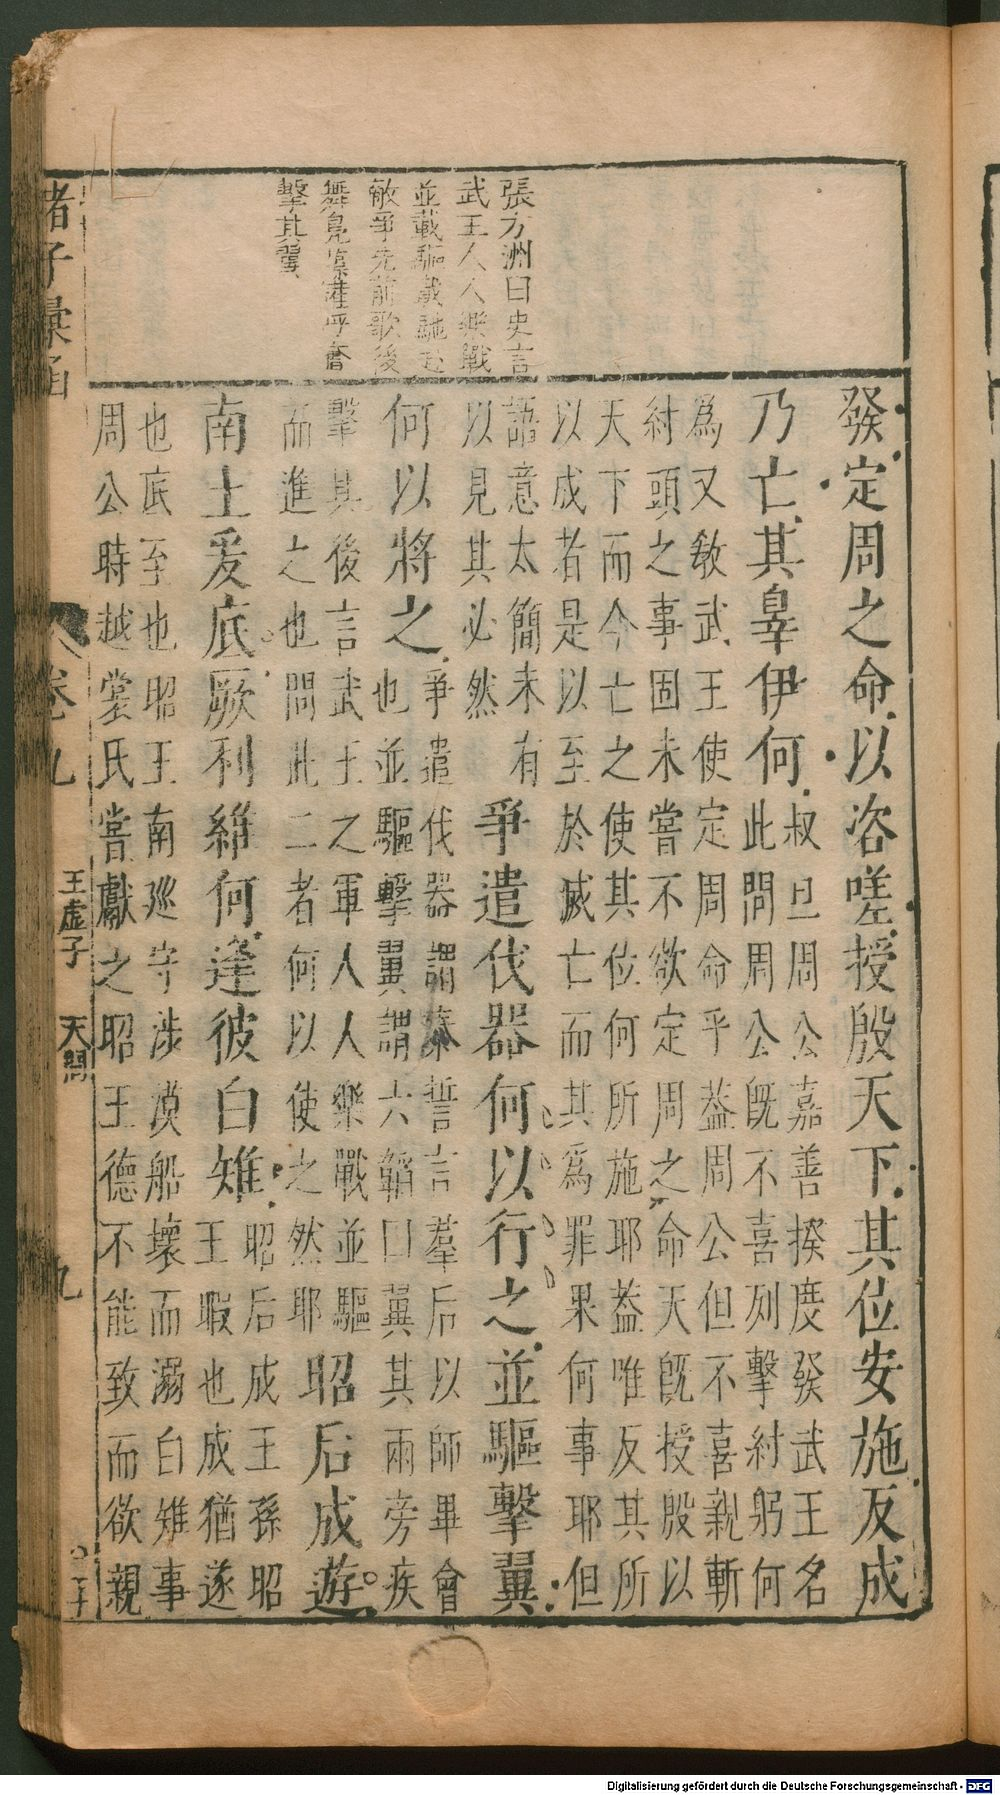 張方洲曰史言
武王人人樂戰
並載驅載馳赴
敵爭先前歌後
舞鳧藻讙呼奮
擊其翼
發定周之命以咨嗟授殷天下其位安施反成
乃亡其辠伊何
叔旦周公嘉善揆度發武王名
此問周公旣不喜列擊紂躬何
為又敎武王使定周命乎葢周公但不喜親斬
紂頭之事固未嘗不欲定周之命天旣授殷以
天下而今亡之使其位何所施耶葢唯反其所
以成者是以至於滅亡而其爲罪果何事耶但
語意太簡未有
以見其必然
爭遣伐器何以行之並驅擊翼
何以將之
爭遣伐器謂泰誓言羣后以師畢會
也並驅擊翼謂六韜曰翼其兩旁疾
擊其後言武王之軍人人樂戰並驅
而進之也問此二者何以使之然耶
昭后成遊
南土爰底厥利維何逢彼白雉
昭后成王孫昭
王暇也成猶遂
也底至也昭王南廵守涉漠船壞而溺白雉事
周公時越裳氏嘗獻之昭王德不能致而欲親
諸子彙函
卷九
王虚子
天問
九
Digitalisierung gefördert durch die Deutsche Forschungsgemeinschaft - DFG